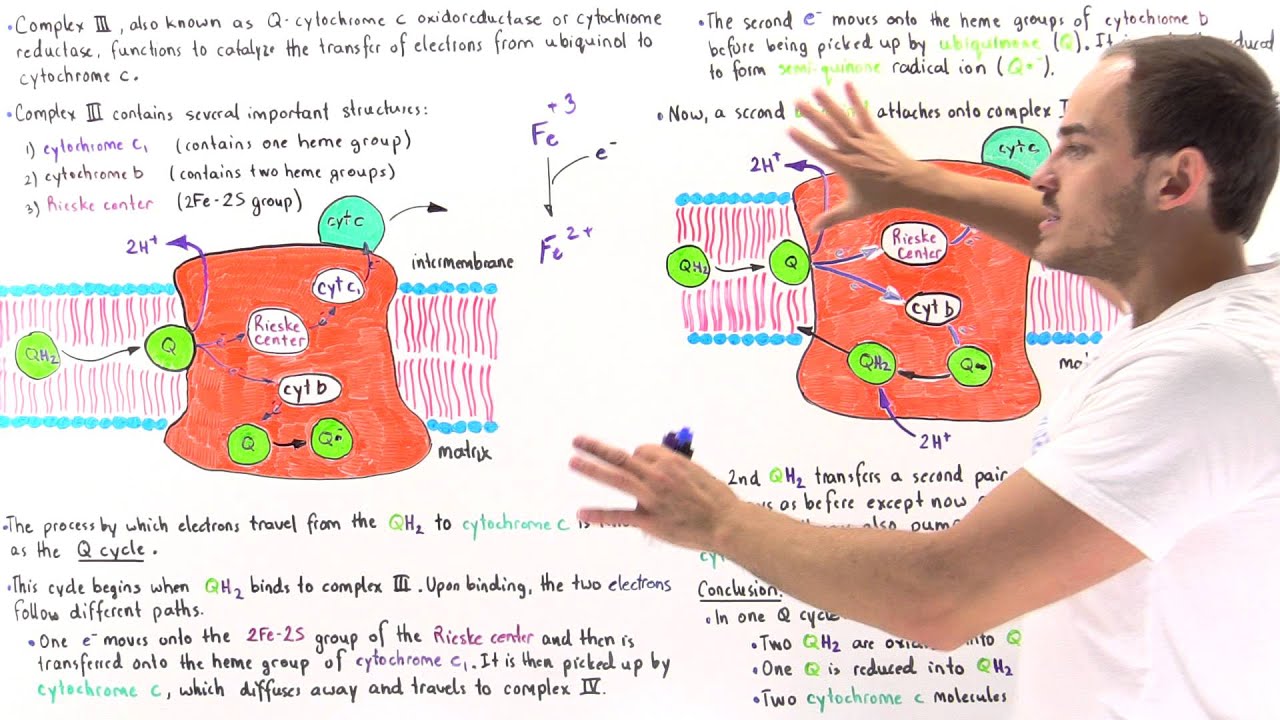 •Complex III, also known as Q-cytochrome c oxidoreductase or cytochrome
reductase, functions to catalyze the transfer of electrons from ubiquinol to
cytochrome c.
•Complex III contains several important structures:
1) cytochrome c₁ (contains one heme group)
2) cytochrome b (contains two heme groups)
3) Rieske center (2Fe-2S group)
Fe+3
e⁻
Fe2+
2H⁺
cyt c
intermembrane
cyt c₁
e⁻
Rieske
center
e⁻
e⁻
QH₂
Q
cyt b
e⁻
Q
Q•⁻
matrix
•The process by which electrons travel from the QH₂ to cytochrome c is
as the Q cycle.
•This cycle begins when QH₂ binds to complex III. Upon binding, the two electrons
follow different paths.
•One e⁻ moves onto the 2Fe-2S group of the Rieske center and then is
transferred onto the heme group of cytochrome c₁. It is then picked up by
cytochrome c, which diffuses away and travels to complex IV.
•The second e⁻ moves onto the heme groups of cytochrome b
before being picked up by ubiquinone (Q). It
to form semi-quinone radical ion (Q•⁻).
•Now, a second attaches onto complex
2H⁺
cyt c
Rieske
center
e⁻
QH₂
Q
e⁻
cyt b
e⁻
QH₂
Q•⁻
2H⁺
2nd QH₂ transfers a second pair
as before except now
also
Conclusion:
•In one Q cycle
•Two QH₂ are into Q
•One Q is reduced into QH₂
•Two cytochrome c molecules